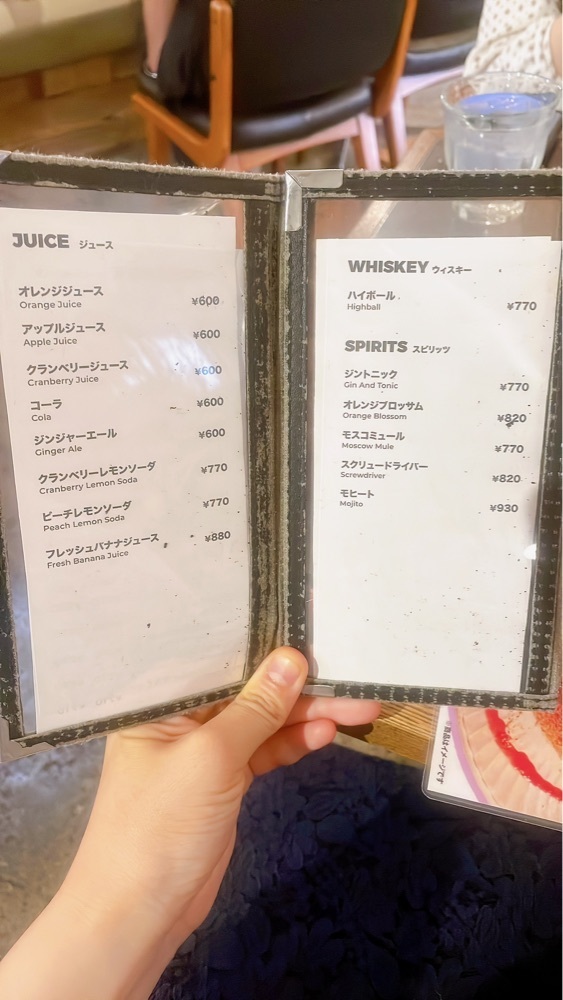 JUICE ジュース
オレンジジュース
Orange Juice ¥600
アップルジュース
Apple Juice ¥600
クランベリージュース
Cranberry Juice ¥600
コーラ
Cola ¥600
ジンジャーエール
Ginger Ale ¥600
クランベリーレモンソーダ
Cranberry Lemon Soda ¥770
ピーチレモンソーダ
Peach Lemon Soda ¥770
フレッシュバナナジュース
Fresh Banana Juice ¥880
WHISKEY ウィスキー
ハイボール
Highball ¥770
SPIRITS スピリッツ
ジントニック
Gin And Tonic ¥770
オレンジブロッサム
Orange Blossom ¥820
モスコミュール
Moscow Mule ¥770
スクリュードライバー
Screwdriver ¥820
モヒート
Mojito ¥930
商品はイメージです